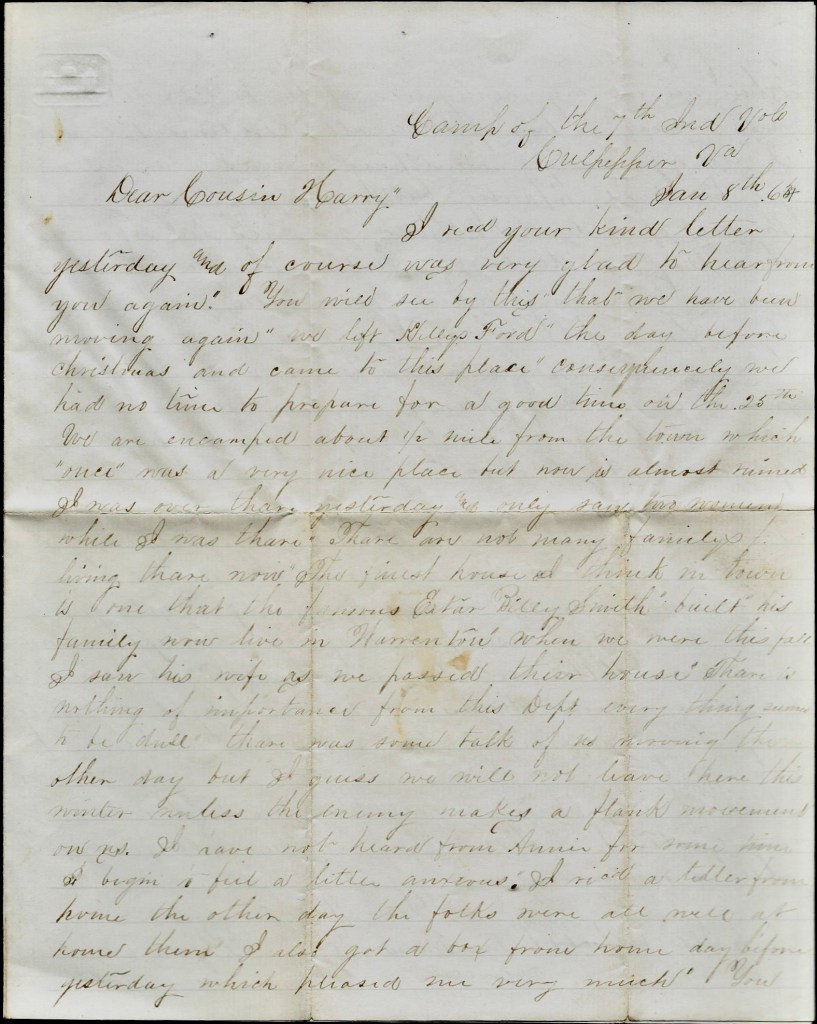 Camp of the 7th Ind Vols
Culpepper Va
Dear Cousin Harry" Jan 8th. 64
I recd your kind letter
yesterday and of course was very glad to hear from
you again." "You will see by this" that we have been
moving again" we left Kellys Ford" the day before
christmas and came to this place" consequencely we
had no time to prepare for a good time on the 25th
We are encamped about 1/2 mile from the town which
"once" was a very nice place but now is almost ruined
I was over thare yesterday and only saw two women
while I was thare" Thare are not many familys
living thare now" The finest house I think in town
is one that the famous Extra "Billy Smith" built" his
family now live in Warrenton" when we were this fall
I saw his wife as we passed thier house" Thare is
nothing of importance from this Dept every thing seems
to be dull" thare was some talk of us moving the
other day but I guess we will not leave here this
winter unless the enemy makes a flank movement
on us. I have not heard from Annie for some time
I begin to feel a little anxious." I rec'd a letter from
home the other day the folks were all well at
home then" I also got a box from home day before
yesterday which pleased me very much" "You